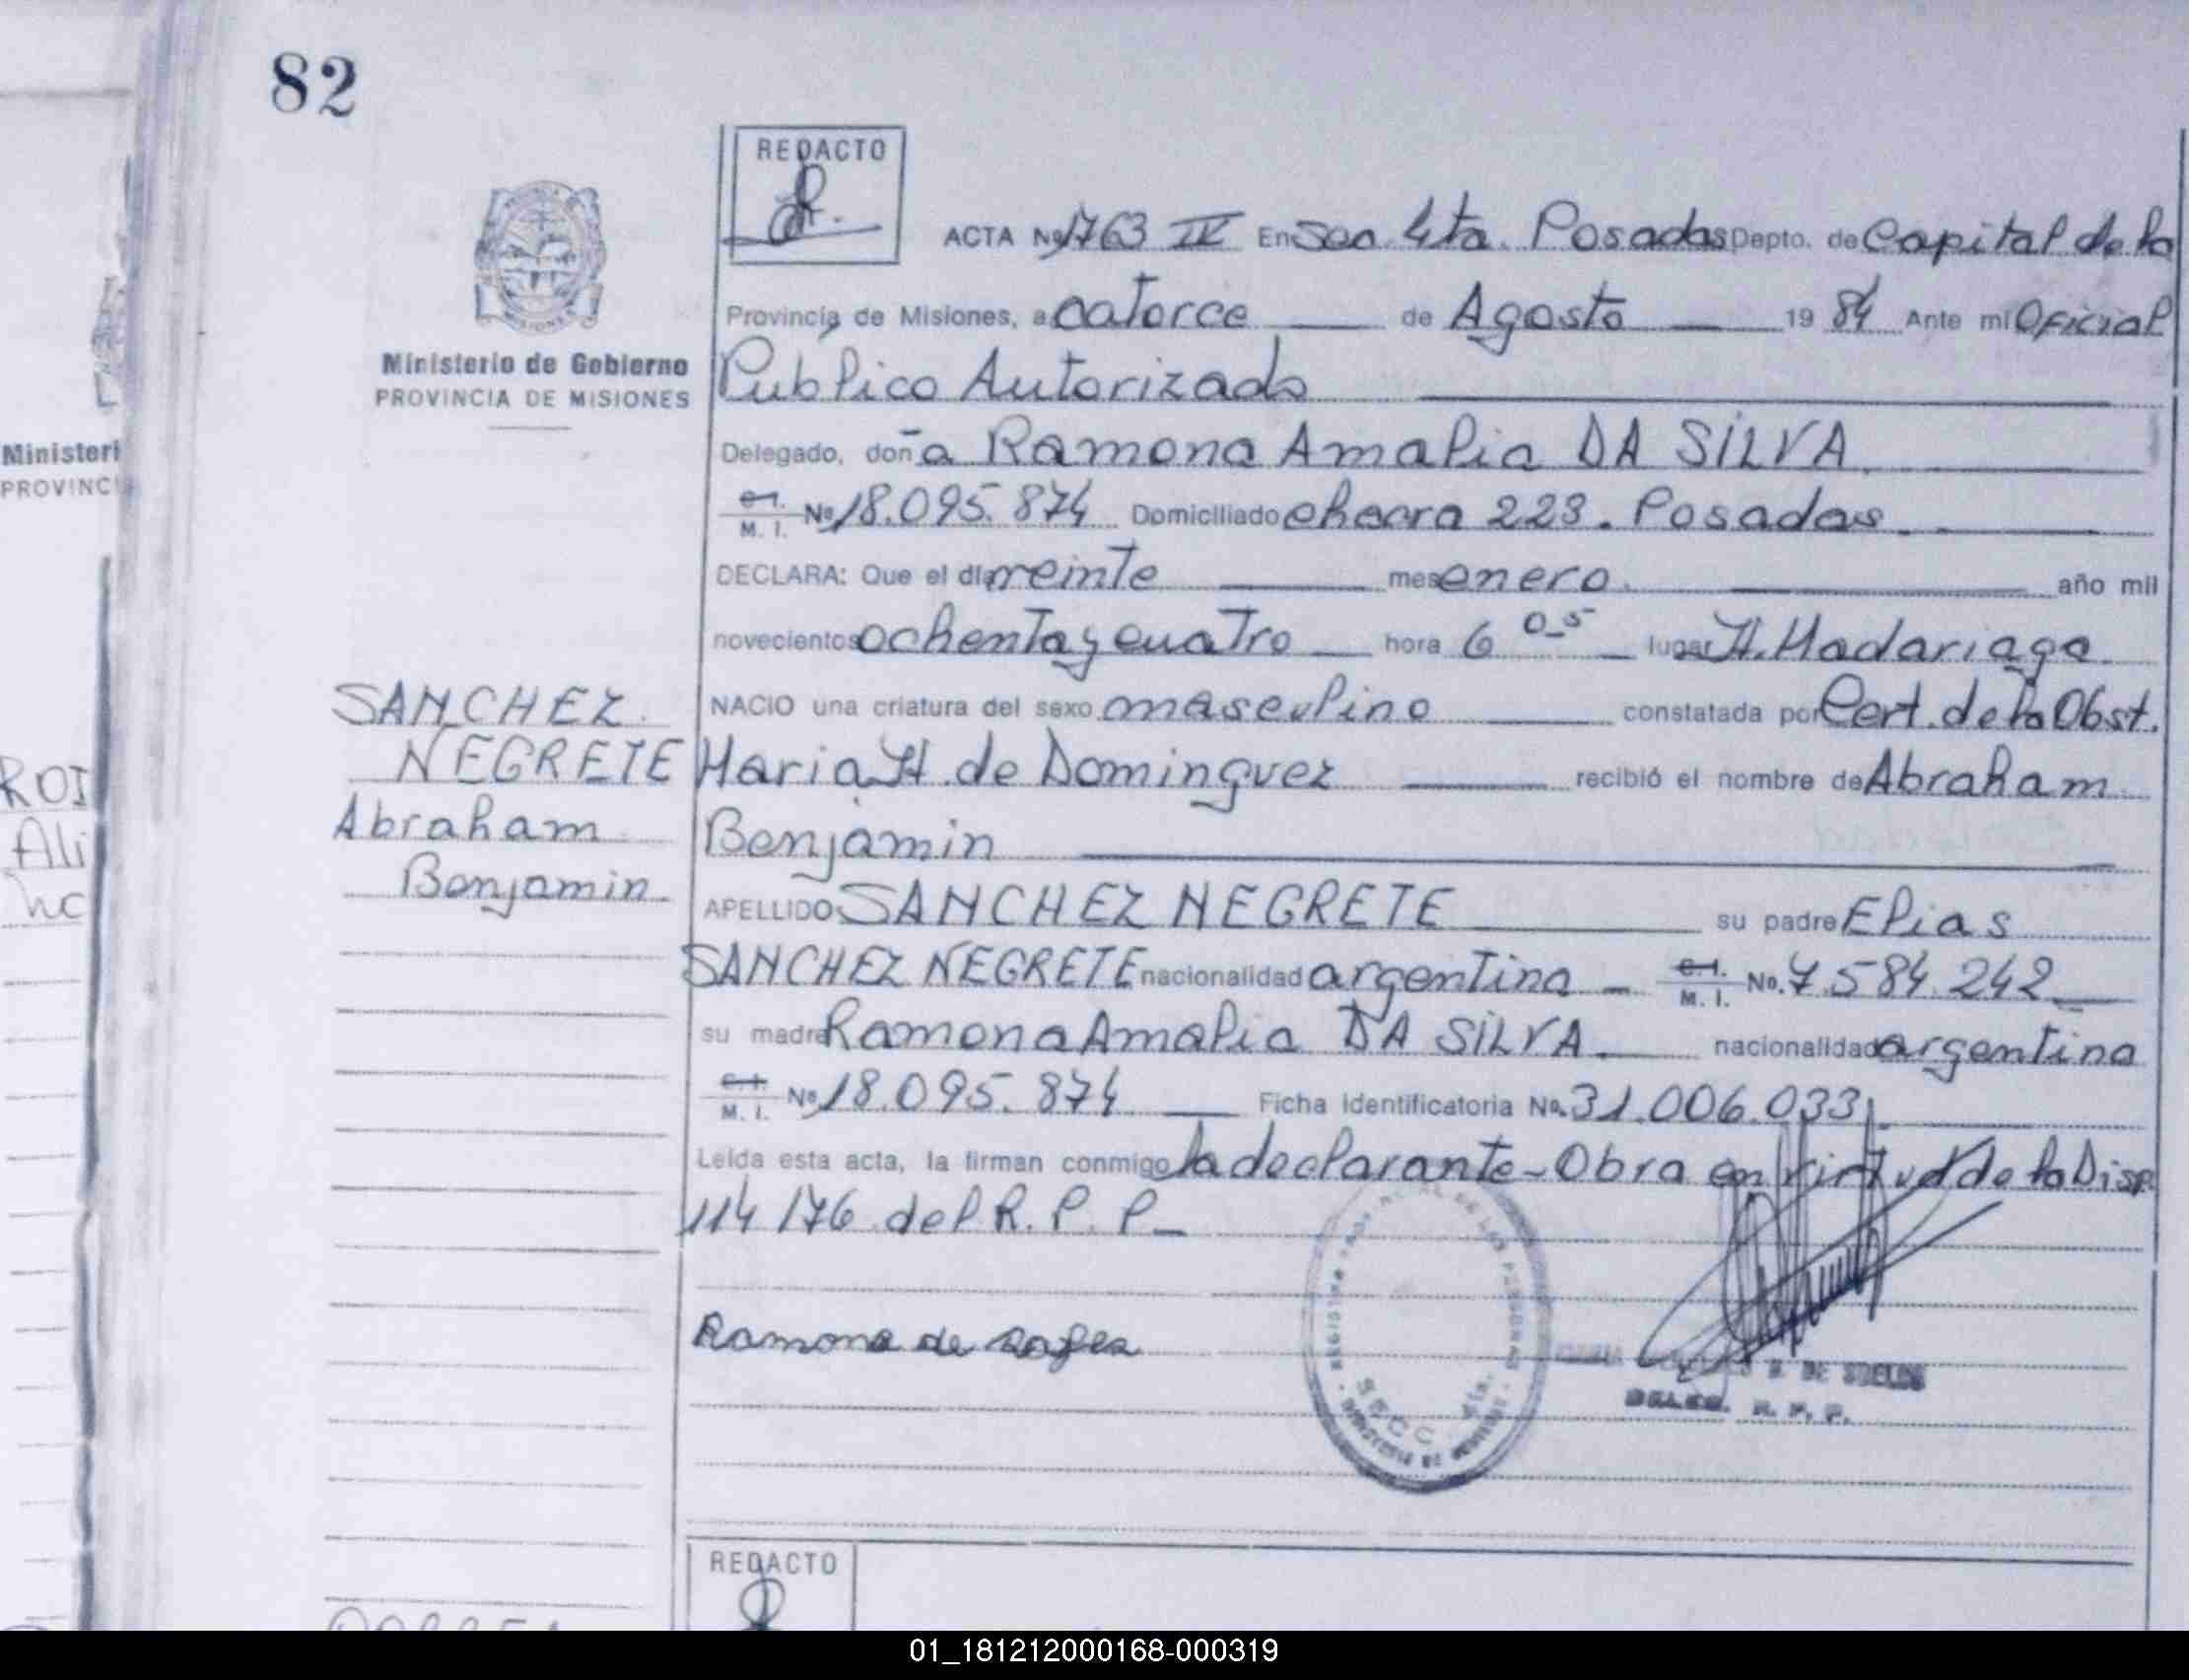 82
REDACTO
ACTA Nº 1763 IV En Sec. 4ta. Posadas Depto. de Capital de la
Provincia de Misiones, a catorce de Agosto 19 84 Ante mi Oficial
Público Autorizado
Ministerio de Gobierno
PROVINCIA DE MISIONES
Delegado, doña Ramona Amalia DA SILVA
C.I. M. I. Nº 18.095.874 Domiciliado chacra 223. Posadas
DECLARA: Que el día veinte mes enero. año mil
novecientos ochenta y cuatro hora 6 05 lugar H. Madariaga
NACIO una criatura del sexo masculino constatada por Cert. de la Obst.
Maria H. de Dominguez recibió el nombre de Abraham
Benjamin
APELLIDO SANCHEZ NEGRETE su padre Elias
SANCHEZ NEGRETE nacionalidad argentina C.I. M. I. No. 7.584.242
su madre Ramona Amalia DA SILVA nacionalidad argentina
C.I. M. I. Nº 18.095.874 Ficha Identificatoria No. 31.006.033
Leída esta acta, la firman conmigo la declarante - Obra en virtud de la Disp.
114/76 del R. P. P.
SANCHEZ
NEGRETE
Abraham
Benjamin
Ramona de
SECC 4ta.
DE SUELDS
DELEG. R. P. P.
REDACTO
Ministeri
PROVINCI
ROI
Ali
01_181212000168-000319